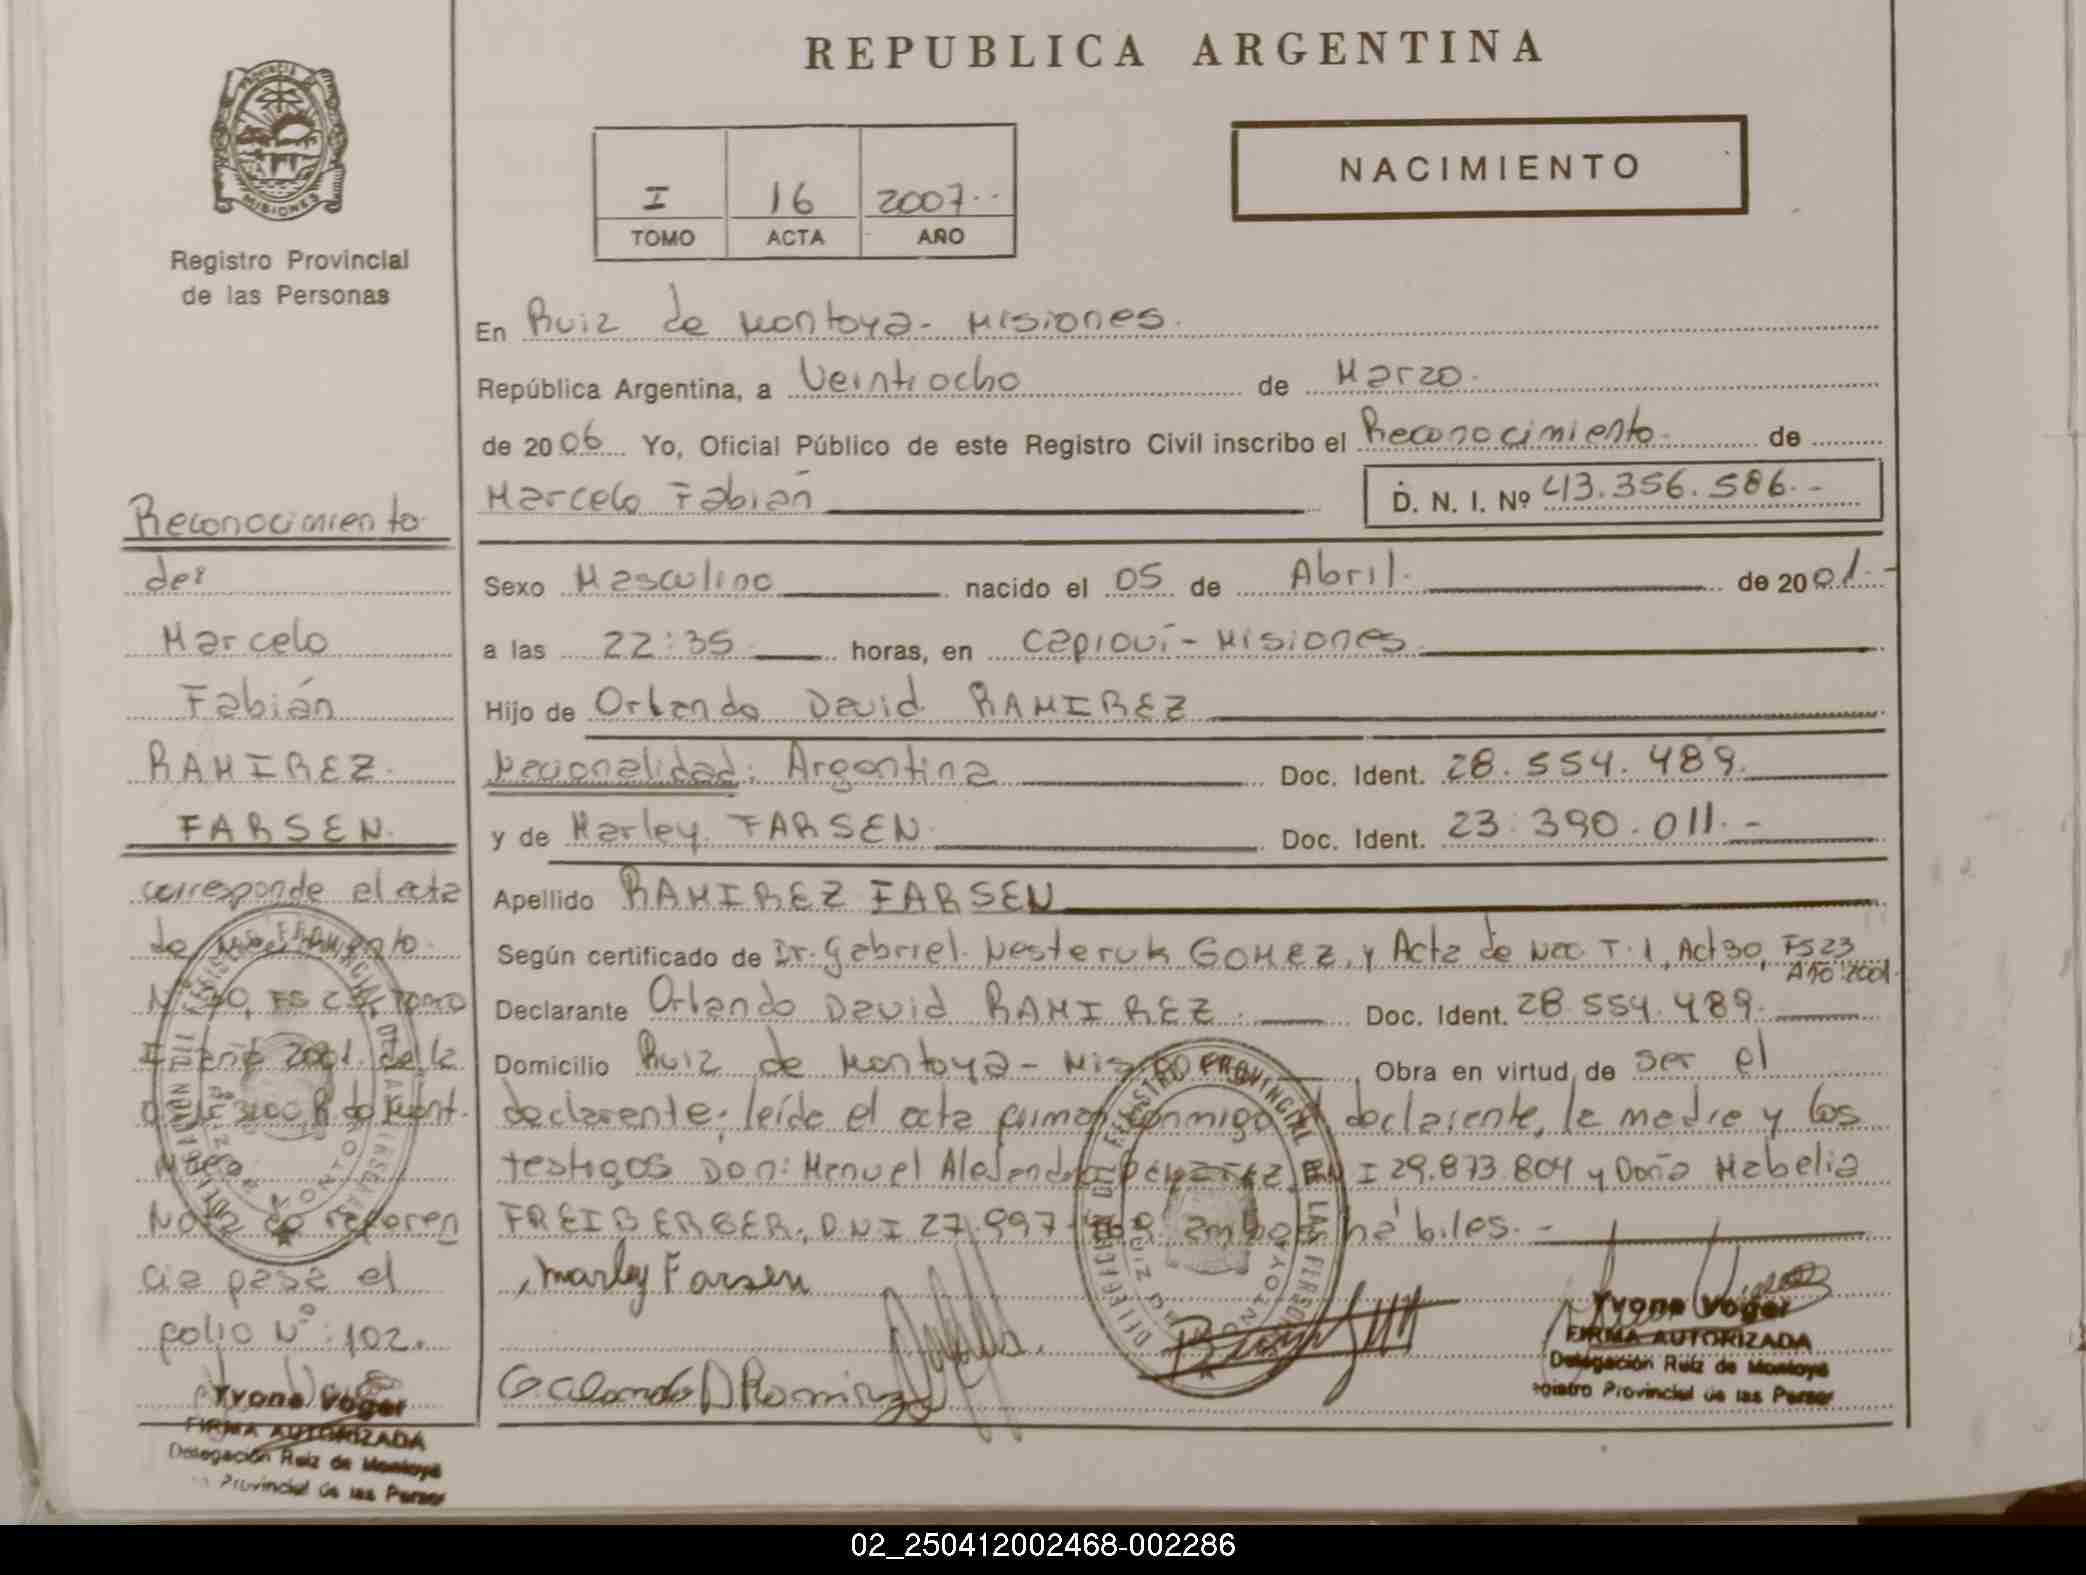 PROVINCIA DE
MISIONES
Registro Provincial
de las Personas
REPUBLICA ARGENTINA
I 16 2007..
TOMO ACTA AÑO
NACIMIENTO
En Ruiz de Montoya- Misiones.
República Argentina, a Veintiocho de Marzo.
de 2006 Yo, Oficial Público de este Registro Civil inscribo el Reconocimiento. de
Marcelo Fabián D. N. I. Nº 43.356.586.-
Sexo Masculino nacido el 05 de Abril. de 2001.-
a las 22:35 horas, en Capioví - Misiones
Hijo de Orlando David RAMIREZ
Nacionalidad: Argentina Doc. Ident. 28.554.489.
y de Marley FARSEN. Doc. Ident. 23.390.011.-
Apellido RAMIREZ FARSEN
Según certificado de Dr. Gabriel Nesteruk GOMEZ, y Acta de Nac. T. 1, Act 30, FS 23
AÑO:2001.
Declarante Orlando David RAMIREZ. Doc. Ident. 28.554.489.
Domicilio Ruiz de Montoya- Obra en virtud de ser el
declarante, leída el acta firman conmigo el declarante, la madre y los
testigos Don: Manuel DNI 29.873.804 y Doña Mabelia
FREIBERGER, D.N.I 27.997 ambos hábiles.-
Marley Farsen
Orlando D Ramirez
Yvone Voger
FIRMA AUTORIZADA
Delegación Ruiz de Montoya
Registro Provincial de las Person
Reconocimiento
de:
Marcelo
Fabián
RAMIREZ
FARSEN.
corresponde el acta
de Nacimiento
Nº 30, FS 23, Tomo
I, año 2001. de la
Nota de referen
cia pasa al
folio Nº: 102.
Yvone Voger
FIRMA AUTORIZADA
Delegación Ruiz de Montoya
Provincial de las Person
DELEGACION DEL REGISTRO PROVINCIAL DE LAS PERSONAS
RUIZ DE MONTOYA
02_250412002468-002286